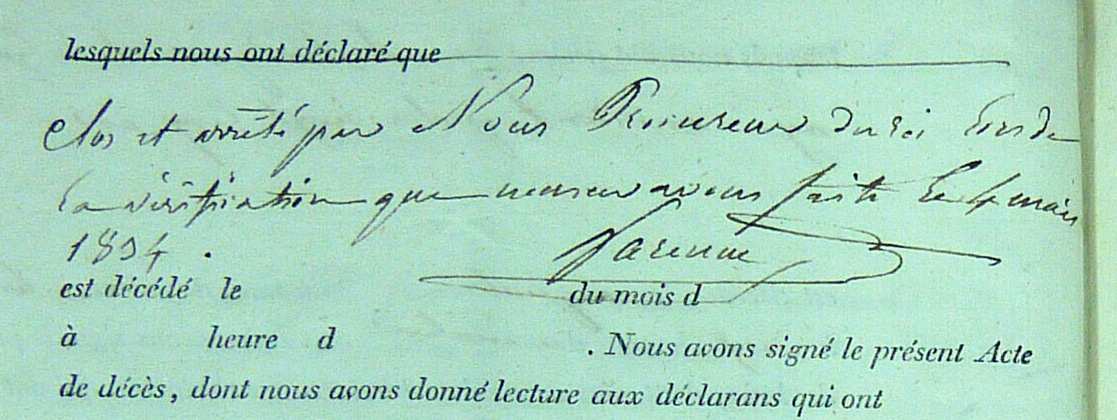 lesquels nous ont déclaré que
Clos et arrêté par Nous Procureur du roi lors de
la vérification que nous en avons faite le 4 mars
1834.
est décédé le du mois d
à heure d . Nous avons signé le présent Acte
de décès, dont nous avons donné lecture aux déclarans qui ont